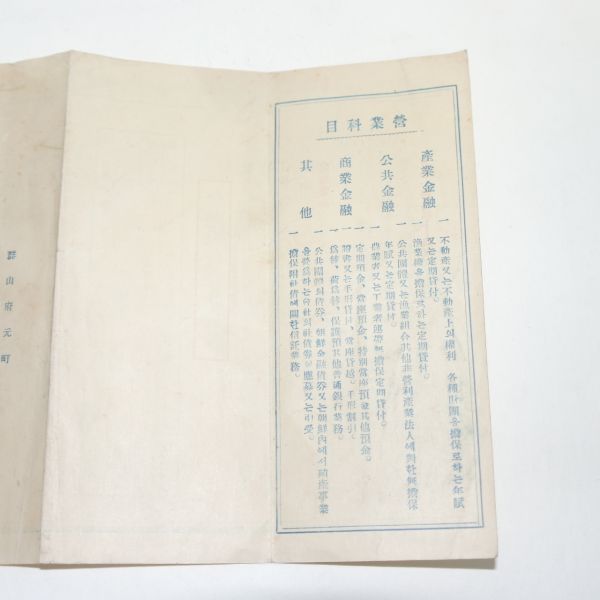 營業科目
產業金融
一 不動產又는不動產上의權利 各種財團을擔保로하는年賦
又는定期貸付。
一 漁業權을擔保로하는定期貸付。
公共金融
一 公共團體又는漁業組合其他非營利產業法人에對한無擔保
年賦又는定期貸付。
一 農業者又는工業者連帶無擔保定期貸付。
商業金融
一 定期預金、當座預金、特別當座預金其他預金。
一 證書又는手形貸付、當座貸越。手形割引。
一 爲替、荷爲替、保護預其他普通銀行業務。
其他
一 公共團體의債券、朝鮮金融債券又는朝鮮內에서殖產事業
을經營하는會社의社債券。應募又는引受。
一 擔保附社債에關한信託業務。
群山府元町